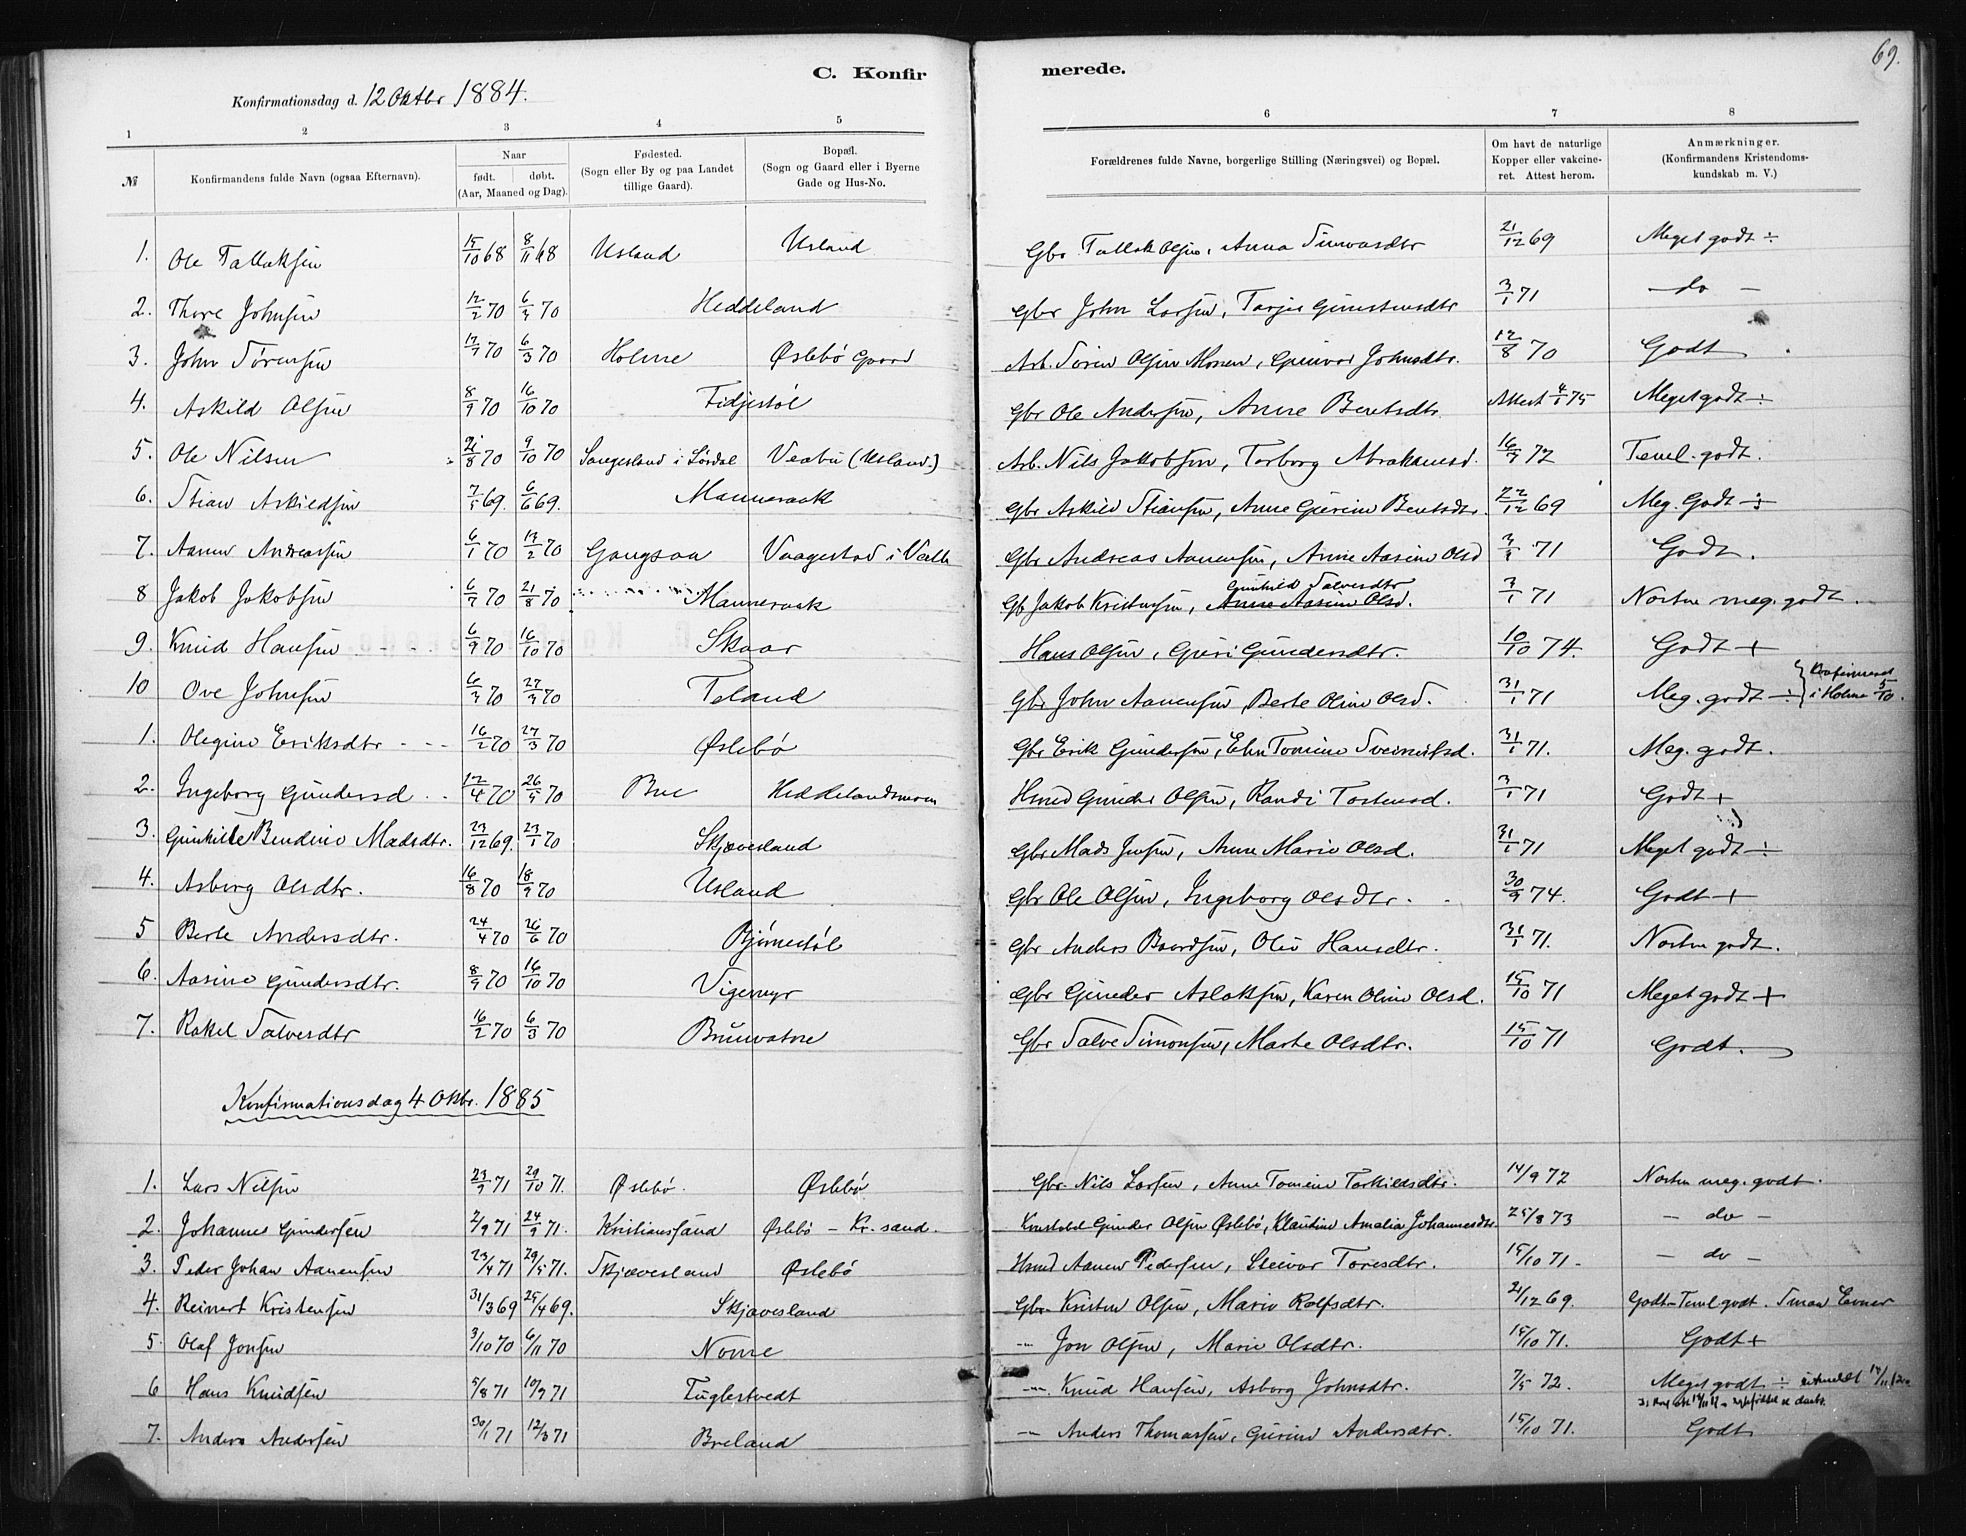 C. Konfir merede. 69.
Konfirmationsdag d. 12 Oktbr 1884.
1 2 3 4 5 6 7 8
№ Konfirmandens fulde Navn (ogsaa Efternavn). Naar født. døbt. (Aar, Maaned og Dag). Fødested. (Sogn eller By og paa Landet tillige Gaard). Bopæl. (Sogn og Gaard eller i Byerne Gade og Hus-No. Forældrenes fulde Navne, borgerlige Stilling (Næringsvei) og Bopæl. Om havt de naturlige Kopper eller vakcineret. Attest herom. Anmærkninger. (Konfirmandens Kristendomskundskab m. V.)
1. Ole Tallaksen 15/10 68 8/11 68 Usland Usland Gbr Tallak Olsen, Anna 21/12 69 Meget godt ÷
2. Thore Johnsen 12/2 70 6/3 70 Heddeland Gbr John Larsen, Tarjer 3/1 71 do
3. John Sørensen 70 6/3 70 Holme Øslebø Gaard Arb. Søren Olsen Monen, Gunvor Johnsdtr. 12/8 70 Godt
4. Askild Olsen 8/9 70 16/10 70 Fidjestøl Gbr Ole Andersen, Anne Bentsdtr. Attest 4/1 75 Meget godt ÷
5. Ole Nilsen 21/8 70 9/10 70 Sangesland i Sørdal (Usland.) Arb. Nils Jakobsen, Torborg Abrahamsd. 16/9 72 Teml. godt.
6. Stian Askildsen 7/5 69. 6/6 69. Mannevaak Gbr Askild Stiansen, Anne Gurine Bentsdtr. 22/12 69 Meg. Godt ÷
7. Aanen Andreassen 6/1 70 13/2 70 Gangsaa Vaagestad i Gbr Andreas Aanensen, Anne Aasine Olsd 3/1 71 Godt.
8 Jakob Jakobsen 6/7 70 21/8 70 Mannevaak Gb Jakob Kristensen, Gunhild Salvesdtr Anne Aasine Olsd. 3/1 71 Norten meg. godt.
9. Knud Hansen 6/9 70 16/10 70 Skaar Hans Olsen, Guri Gundersdtr. 10/10 74. Godt +
10 Ove Johnsen 6/3 70 27/3 70 Teland Gbr John Aanensen, Berte Oline Olsd. 31/1 71 Meg. godt ÷ Konfirmeret i Holme 5/10.
1. Olegine Eriksdtr 16/2 70 27/3 70 Øslebø Gbr Erik Gundersen, Elen Tomine 31/1 71. Meg. godt.
2. Ingeborg Gundersd 12/4 70 26/5 70 Bue Heddelandsmoen Hsmd Gunder Olsen, Randi Tostensd. 3/1 71 Godt +
3. Gunhilde Bendine Madsdtr. 23/12 69. 23/1 70 Skjævesland Gbr Mads Jensen, Anne Marie Olsd. 31/1 71 Meget godt ÷
4. Asborg Olsdtr. 16/8 70 18/9 70 Usland Gbr Ole Olsen, Ingeborg Olsdtr. 30/9 74. Godt +
5 Berte Andersdtr. 24/4 70 26/6 70 Bjørnestøl Gbr Anders Baardsen, Olive Hansdtr. 31/1 71. Norten godt.
6. Aasine Gundersdtr. 8/9 70 16/10 70 Vigemyr Gbr Gunder Aslaksen, Karen Oline Olsd. 15/10 71 Meget godt +
7. Rakel Salvesdtr 16/2 70 6/3 70 Bruuvatne Gbr Salve Simonsen, Marte Olsdtr. 15/10 71 Godt.
Konfirmationsdag 4 Oktbr. 1885
1. Lars Nilsen 23/9 71 29/10 71. Øslebø. Øslebø Gbr. Nils Larsen, Anne Tomine Torkildsdtr. 14/9 72 Norten meg. godt.
2. Johanne Gundersen 2/9 71 24/9 71. Kristianssand Øslebø - Kr. sand. Gunder Olsen Øslebø, Klaudine Amalia Johannesdtr 25/8 73 - do -
3. Peder Johan Aanensen 23/4 71 29/5 71. Skjævesland Øslebø Hsmd Aanen Pedersen, Siivor Toresdtr. 15/10 71. - do -
4. Reinert Kristensen 31/3 69 25/4 69. Skjævesland Gbr Kristen Olsen, Marie Rolfsdtr. 21/12 69. Godt - Teml. godt. Smaa Evner
5. Olaf Jonsen 3/10 70 6/11 70 Nome - Jon Olsen, Marie Olsdtr. 15/10 71. Godt +
6 Hans Knudsen 5/8 71 10/9 71 Fuglestvedt - Knud Hansen, Asborg Johnsdtr. 7/5 72. Meget godt ÷
7. Anders Andersen 30/1 71 12/3 71 Breland - Anders Thomassen, Gurine Andersdtr. 15/10 71. Godt